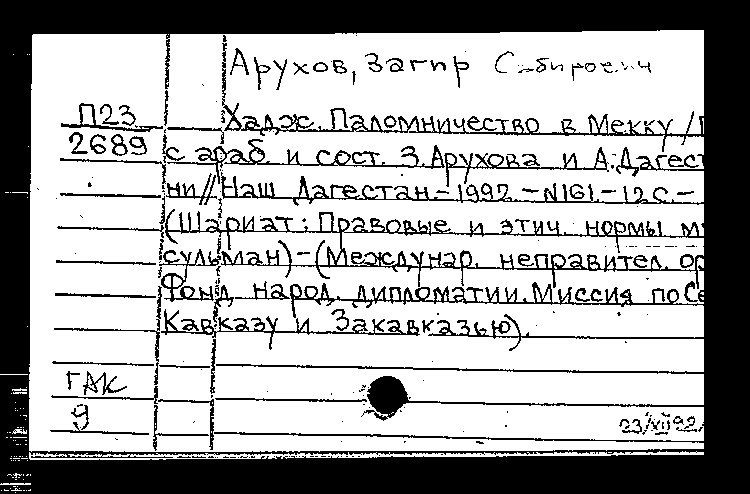 Арухов, Загир Сабирович
П23 Хадж. Паломничество в Мекку /П
2689 с араб. и сост. З.Арухова и А.Дагест
ни//Наш Дагестан.-1992.-N161.-12с.-
(Шариат: Правовые и этич. нормы му
сульман)-(Междунар. неправител. ор
Фонд народ. дипломатии. Миссия по Се
Кавказу и Закавказью).
ГАК
9
23/XII92